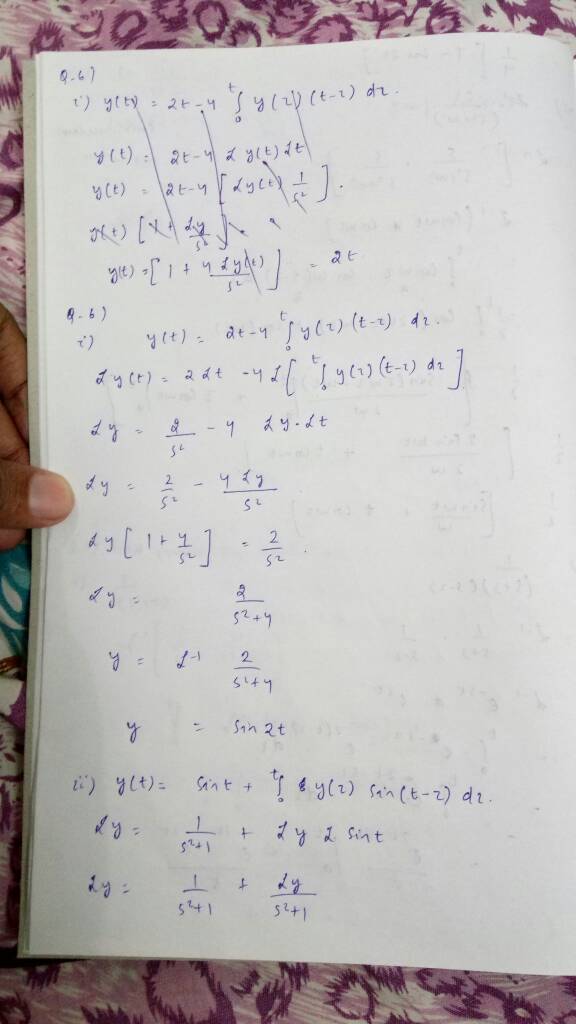 Q.6)
i) y(t) = 2t - 4 ∫₀ᵗ y(τ) (t-τ) dτ.
y(t) = 2t - 4 ℒ y(t) ℒt
y(t) = 2t - 4 [ ℒy(t) 1/s² ].
y(t) [ 1 + ℒy/s² ]
y(t) = [ 1 + 4 ℒy(t)/s² ] = 2t
Q.6)
i) y(t) = 2t - 4 ∫₀ᵗ y(τ) (t-τ) dτ.
ℒy(t) = 2 ℒt - 4 ℒ [ ∫₀ᵗ y(τ) (t-τ) dτ ]
ℒy = 2/s² - 4 ℒy . ℒt
ℒy = 2/s² - 4ℒy/s²
ℒy [ 1 + 4/s² ] = 2/s².
ℒy = 2/(s²+4)
y = ℒ⁻¹ 2/(s²+4)
y = sin2t
ii) y(t) = sint + ∫₀ᵗ y(τ) sin(t-τ) dτ.
ℒy = 1/(s²+1) + ℒy ℒ sint
ℒy = 1/(s²+1) + ℒy/(s²+1)